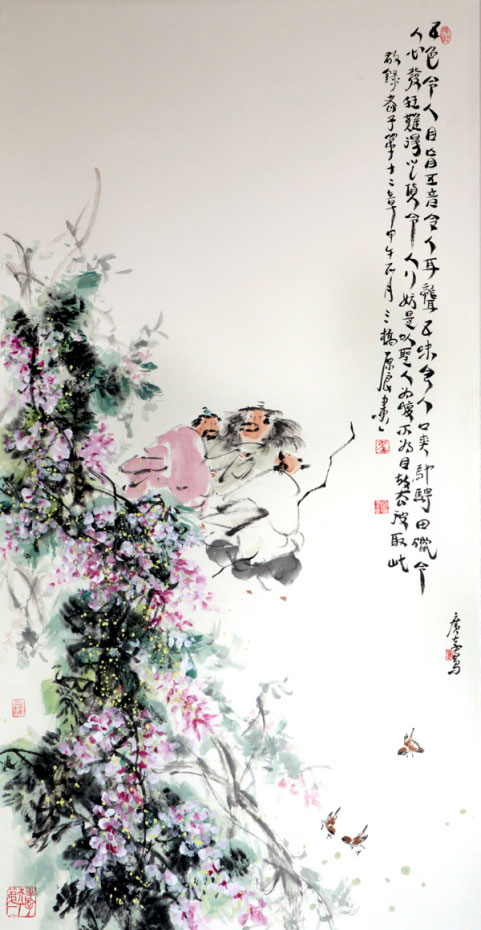 五色令人目盲五音令人耳聾五味令人口爽馳騁田獵令
人心發狂難得之貨令人行妨是以聖人為腹不為目故去彼取此
錄老子第十二章甲午 月三橋原 書
廣 寫